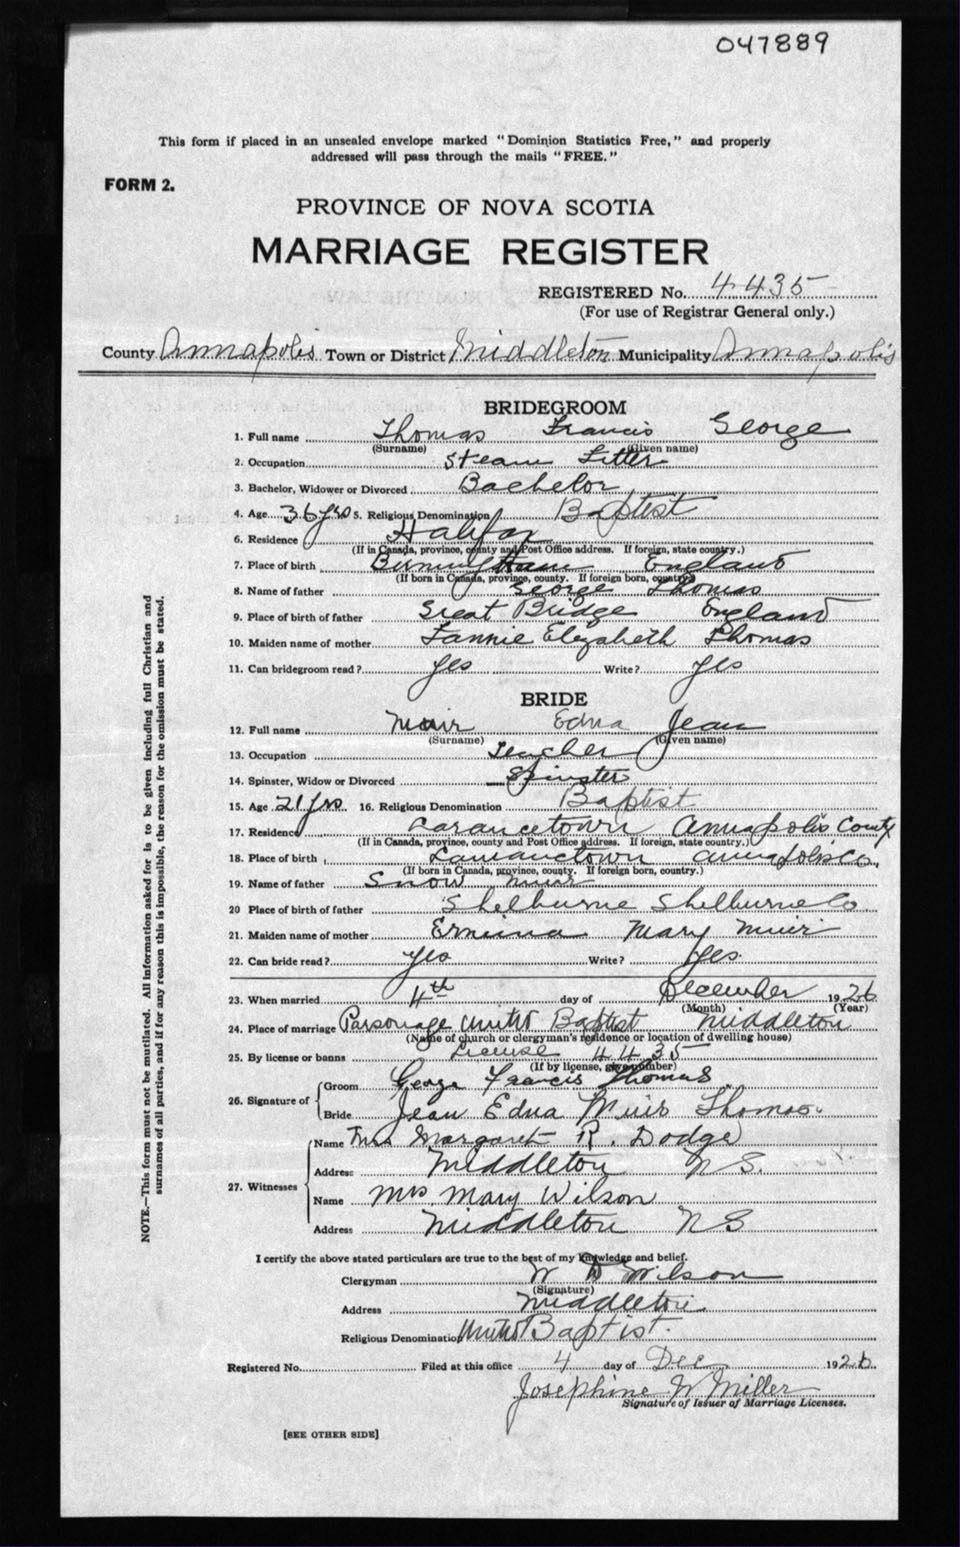 047889
This form if placed in an unsealed envelope marked "Dominion Statistics Free," and properly
addressed will pass through the mails "FREE."
FORM 2.
PROVINCE OF NOVA SCOTIA
MARRIAGE REGISTER
REGISTERED No. 4435
(For use of Registrar General only.)
County Annapolis Town or District Middleton Municipality Annapolis
BRIDEGROOM
1. Full name Thomas Francis George
(Surname) (Given name)
2. Occupation Steam Fitter
3. Bachelor, Widower or Divorced Bachelor
4. Age 36 yrs 5. Religious Denomination Baptist
6. Residence Halifax
(If in Canada, province, county and Post Office address. If foreign, state country.)
7. Place of birth Birmingham England
(If born in Canada, province, county. If foreign born, country)
8. Name of father George Thomas
9. Place of birth of father Great Bridge England
10. Maiden name of mother Fannie Elizabeth Thomas
11. Can bridegroom read? Yes Write? Yes
BRIDE
12. Full name Muir Edna Jean
(Surname) (Given name)
13. Occupation Teacher
14. Spinster, Widow or Divorced Spinster
15. Age 21 yrs. 16. Religious Denomination Baptist
17. Residence Annapolis County
(If in Canada, province, county and Post Office address. If foreign, state country.)
18. Place of birth Annapolis Co.,
(If born in Canada, province, county. If foreign born, country.)
19. Name of father Snow Muir
20 Place of birth of father Shelburne Shelburne Co.
21. Maiden name of mother Mary Muir
22. Can bride read? Yes Write? Yes.
23. When married 4th day of December 1926
(Month) (Year)
24. Place of marriage Parsonage United Baptist Middleton
(Name of church or clergyman's residence or location of dwelling house)
25. By license or banns License 4435
(If by license, give number)
26. Signature of Groom George Francis Thomas
Bride Jean Edna Muir Thomas.
27. Witnesses Name Margaret R. Dodge
Address Middleton N S.
Name Mrs Mary Wilson
Address Middleton N S
I certify the above stated particulars are true to the best of my knowledge and belief.
Clergyman W D Wilson
(Signature)
Address Middleton
Religious Denomination United Baptist.
Registered No. Filed at this office 4 day of Dec 1926.
Josephine W Miller
Signature of Issuer of Marriage Licenses.
[SEE OTHER SIDE]
NOTE.—This form must not be mutilated. All information asked for is to be given including full Christian and
surnames of all parties, and if for any reason this is impossible, the reason for the omission must be stated.